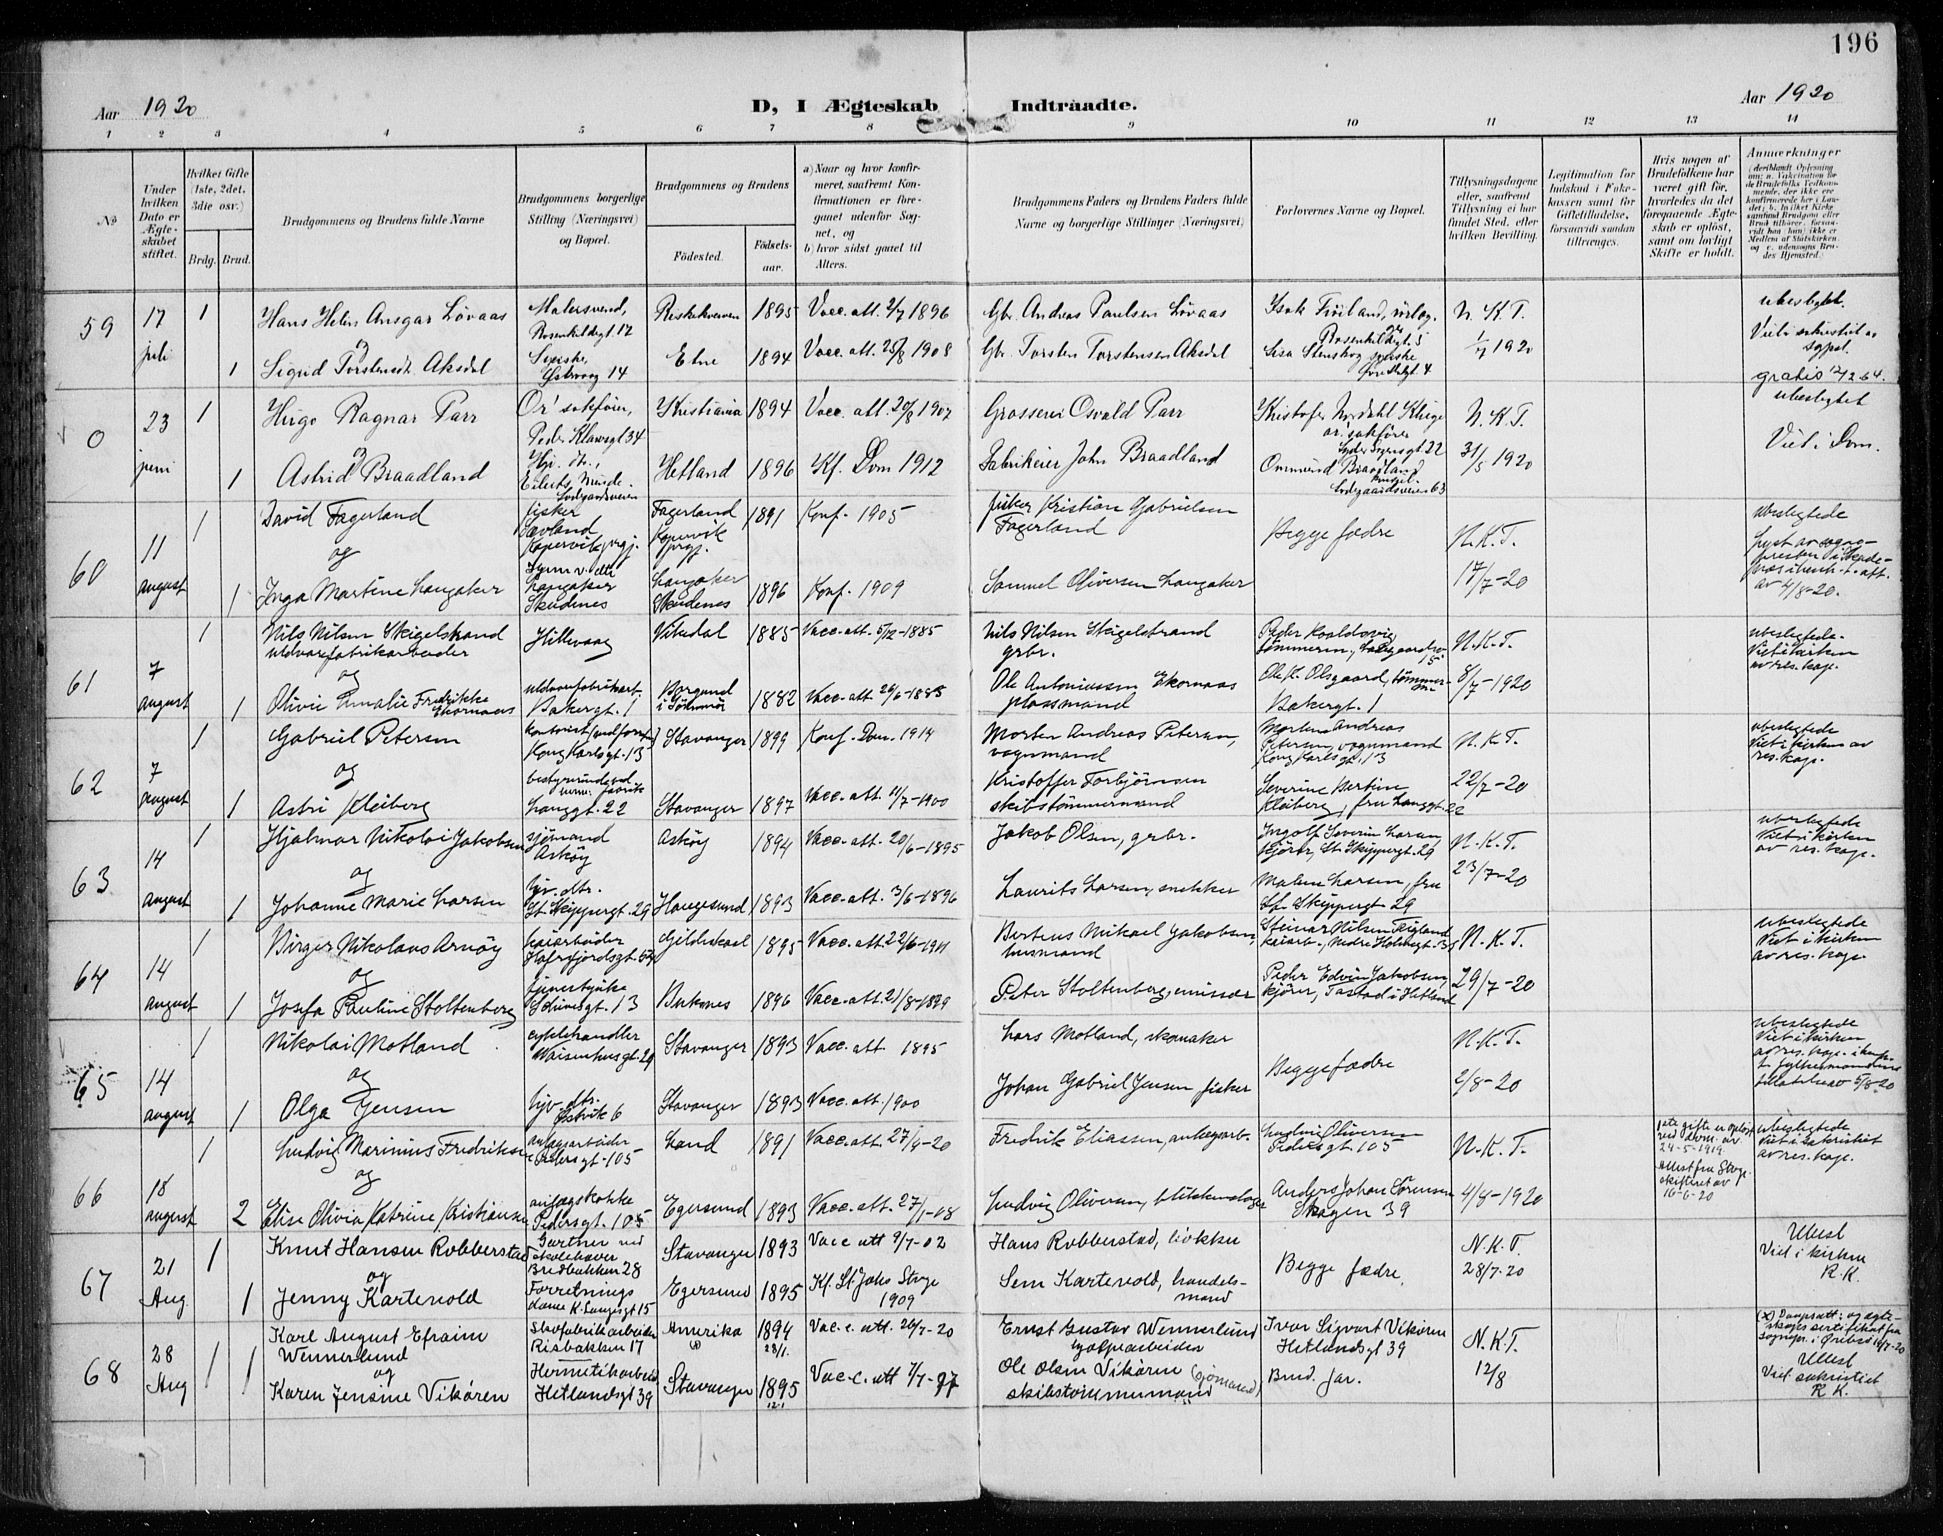 196
Aar 1920
D, I Ægteskab Indtraadte.
Aar 1920
1 2 3 4 5 6 7 8 9 10 11 12 13 14
No
Under hvilken Dato er Ægteskabet stiftet.
Hvilket Gifte (1ste, 2det, 3die osv.)
Brdg. Brud.
Brudgommens og Brudens fulde Navne
Brudgommens borgerlige Stilling (Næringsvei) og Bopæl.
Brudgommens og Brudens
Fødested.
Fødselsaar.
a) Naar og hvor konfirmeret, saafremt Konfirmationen er foregaaet udenfor Sognet, og
b) hvor sidst gaaet til Alters.
Brudgommens Faders og Brudens Faders fulde Navne og borgerlige Stillinger (Næringsvei)
Forlovernes Navne og Bopæl.
Tillysningsdagene eller, saafremt Tillysning ei har fundet Sted, efter hvilken Bevilling.
Legitimation for Indskud i Enkekassen samt for Giftetilladelse, forsaavidt saadan tiltrænges.
Hvis nogen af Brudefolkene har været gift før, hvorledes da det foregaaende Ægteskab er opløst, samt om lovligt Skifte er holdt.
Anmærkninger
59
17 juli
1
Hans Helin Ansgar Løvaas
Malersvend, Rosenkildegt 12
Riskekværven 1895 Vacc. att. 2/7 1896
Gbr. Andreas Paulsen Løvaas
N. K. T.
ubeslegtet.
og
1
Sigrid Torstensdt. Aksdal
Syerske, Østervaag 14
Etne 1894 Vacc. att. 25/8 1908
Gbr. Torsten Torstensen Aksdal
1/7 1920
Viet i sakristiet av sogpr.
0
23 juni
1
Hugo Ragnar Parr
Or' sakfører, Peder Klowsgt 34
Kristiania 1894 Vacc. att. 20/8 1907
Grosserer Osvald Parr
N. K. T.
gratis
ubeslegtet
og
1
Astrid Braadland
Hj. dt.,
Hetland 1896 Kf. Dom 1912
Fabrikeier John Braadland
Ommund Braadland
31/5 1920
Viet i Dom.
60
11 august
1
David Fagerland
fisker Sævland Kopervik prgj.
Fagerland Kopervik prgj. 1891 Konf. 1905
fisker Kristian Gabrielsen Fagerland
Begge fædre
N.K.T.
17/7-20
ubeslegtede
av 4/8-20.
og
1
Inga Martine Langaker
Langaker Skudenes
Langaker Skudenes 1896 Konf. 1909
Samuel Oliversen Langaker
61
7 august
1
Nils Nilsen Skigelstrand
uldvarefabrikarbeider
Hillevaag
Vikedal 1885 Vacc. att. 5/12-1885
Nils Nilsen Skigelstrand grbr.
N.K.T.
8/7-1920
ubeslegtede.
Viet i kirken av res. kap.
og
1
Olivie Amalie Fredrikke Ekornaas
uldvarefabrikarb. Bakergt. 1
Borgund i Søndmør 1882 Vacc. att. 26/6-1883
Ole Antoniussen Ekornaas plassmand
Ole K. Olsgaard, tømmerm. Bakergt. 1
62
7 august
1
Gabriel Petersen
Kong Karlsgt. 13
Stavanger 1899 Konf. Dom. 1914
Morten Andreas Petersen, vognmand
Morten Andreas Petersen, vognmand Kong Karlsgt. 13
N.K.T.
22/7-20
ubeslegtede
Viet i kirken av res. kap.
og
1
Asbri Kleiberg
Langgt. 22
Stavanger 1897 Vacc. att. 11/7-1900
Kristoffer Torbjørnsen skibstømmermand
Severine Bertine Kleiberg, fru Langgt. 22
63
14 august
1
Hjalmar Nikolai Jakobsen
sjømand Askøy
Askøy 1894 Vacc. att. 20/6-1895
Jakob Olsen, grbr.
Ingolf Severin Larsen, kjører, St. Skippergt. 29
N.K.T.
23/7-20
ubeslegtede
Viet i kirken av res. kap.
og
1
Johanne Marie Larsen
hjv. dtr. St. Skippergt. 29
Haugesund 1893 Vacc. att. 3/6-1896
Laurits Larsen, snekker
Malene Larsen, fru St. Skippergt 29
64
14 august
1
Birger Nikolaus Arnøy
kaiarbeider Hafrsfjordsgt.
Gildeskaal 1895 Vacc. att. 22/6-1911
Berteus Mikael Jakobsen, husmand
Steinar Nilsen Tigland kaiarb., Nedre Holmegt.
N.K.T.
29/7-20
ubeslegtede
Viet i kirken av res. kap.
og
1
Josefa Pauline Stoltenberg
tjenestpike
Buksnes 1896 Vacc. att. 21/8-1899
Peter Stoltenberg, emissær
Peder Edvin Jakobsen, kjører, Tastad i Hetland
65
14 august
1
Nikolai Motland
cyklehandler Waisenhusgt. 29
Stavanger 1893 Vacc. att. 1895
Lars Motland, skomaker
Begge fædre
N.K.T.
2/8-20
ubeslegtede
Viet i kirken
og
1
Olga Jensen
hjv. dtr. Østervik 6
Stavanger 1893 Vacc. att. 1900
Johan Gabriel Jensen fisker
66
18 august
1
Ludvig Marinius Fredriksen
anlægsarbeider Pedersgt. 105
Land 1891 Vacc. att. 27/4-20
Fredrik Eliassen, anlegsarb.
Ludvig Oliversen Pedersgt. 105
N.K.T.
4/8-1920
1ste gifte er opløst ved dom. av 24-5-1919.
Attest fra Stvgr. skifteret av 16-6-20
ubeslegtede
Viet i sakristiet av res. kap.
og
2
Elise Olivia Katrine Kristiansen
anlægskokke Pedersgt. 105
Egersund 1893 Vacc. att. 27/1-08
Ludvig Oliversen, blikkenslager
Anders Johan Sørensen Skagen 39
67
21 Aug
1
Knut Hansen Robberstad
Gartner ved skolehaver Bredbakken 28
Stavanger 1893 Vacc att 9/7-02
Hans Robberstad, bøkker
Begge fædre.
N.K.T.
28/7-20
Ubesl
Viet i kirken
R. K.
og
1
Jenny Kartevold
Forretningsdame K. Langesgt 15
Egersund 1895 Kf. St. Johs Stvgr 1909
Sem Kartevold, handelsmand
68
28 Aug
1
Karl August Efraim Wennerlund
Risbakken 17
Amerika (x) 1894 28/1. Vac.c. att. 26/7-20
Ernst Gustav Wennerlund
Ivar Sigvart Vikøren Hetlandsgt 39
N.K.T.
12/8
Ubesl
Viet sakristiet
R K.
og
1
Karen Jensine Vikøren
Hermetikarbeid Hetlandsgt 39
Stavanger 1895 12-1 Vac.c. att 7/7-97
Ole Olsen Vikøren (sjømand) skibstømmermand
Brud. far.